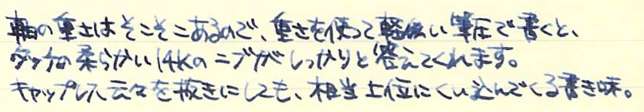 軸の重さはそこそこあるので、重さを使って軽い筆圧で書くと、
タッチの柔らかい14Kのニブがしっかりと答えてくれます。
キャップレス云々を抜きにしても、相当上位にくい込んでくる書き味。